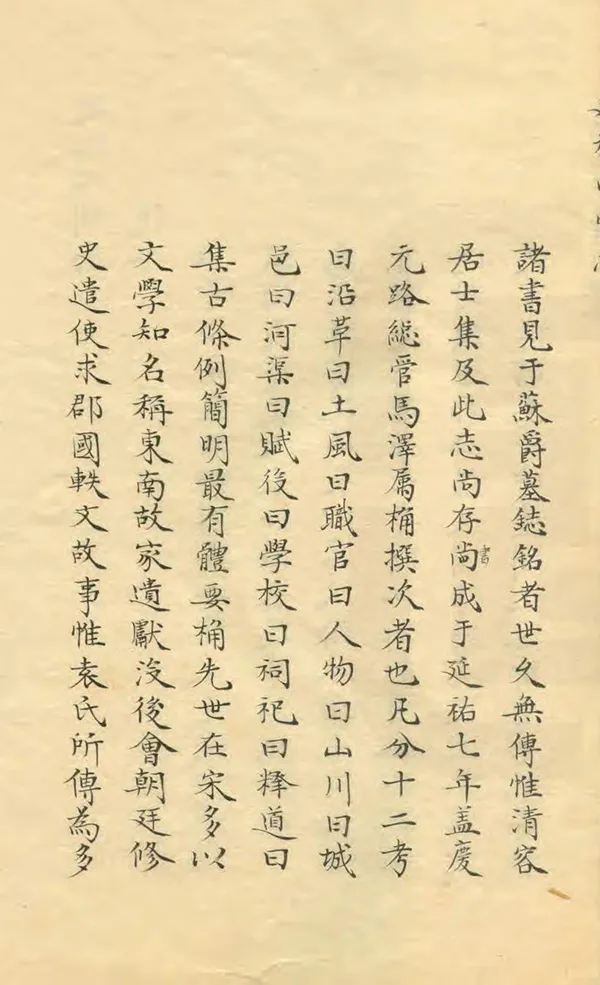 諸書見于蘇爵墓誌銘者世久無傳惟清容
居士集及此志尚存尚書成于延祐七年盖慶
元路総管馬澤属桷撰次者也凡分十二考
曰沿革曰土風曰職官曰人物曰山川曰城
邑曰河渠曰賦役曰學校曰祠祀曰釋道曰
集古條例簡明最有體要桷先世在宋多以
文學知名稱東南故家遺獻沒後會朝廷修
史遣使求郡國軼文故事惟袁氏所傳為多